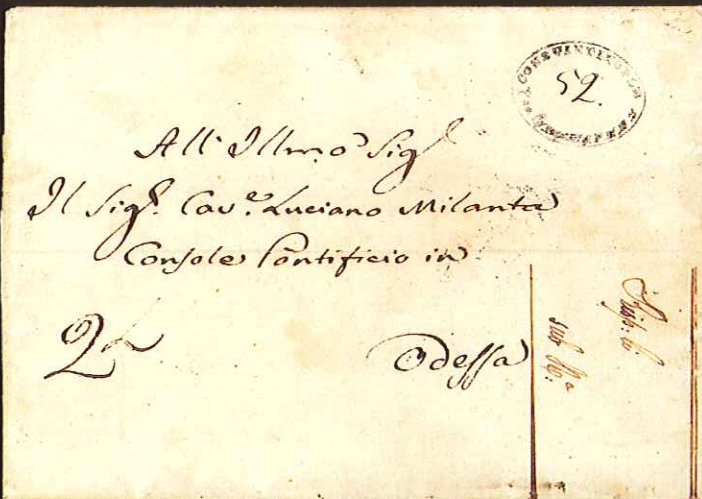 52.
All' Illmo Sigr
Il Sigr. Cave. Luciano Milanta
Console Pontificio in
Odessa
2